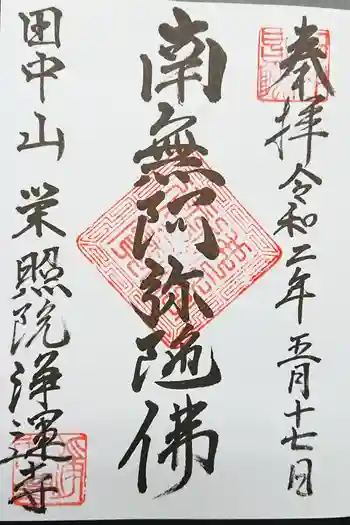 奉拝 令和二年五月十七日
南無阿弥陀佛
田中山 栄照院 浄運寺